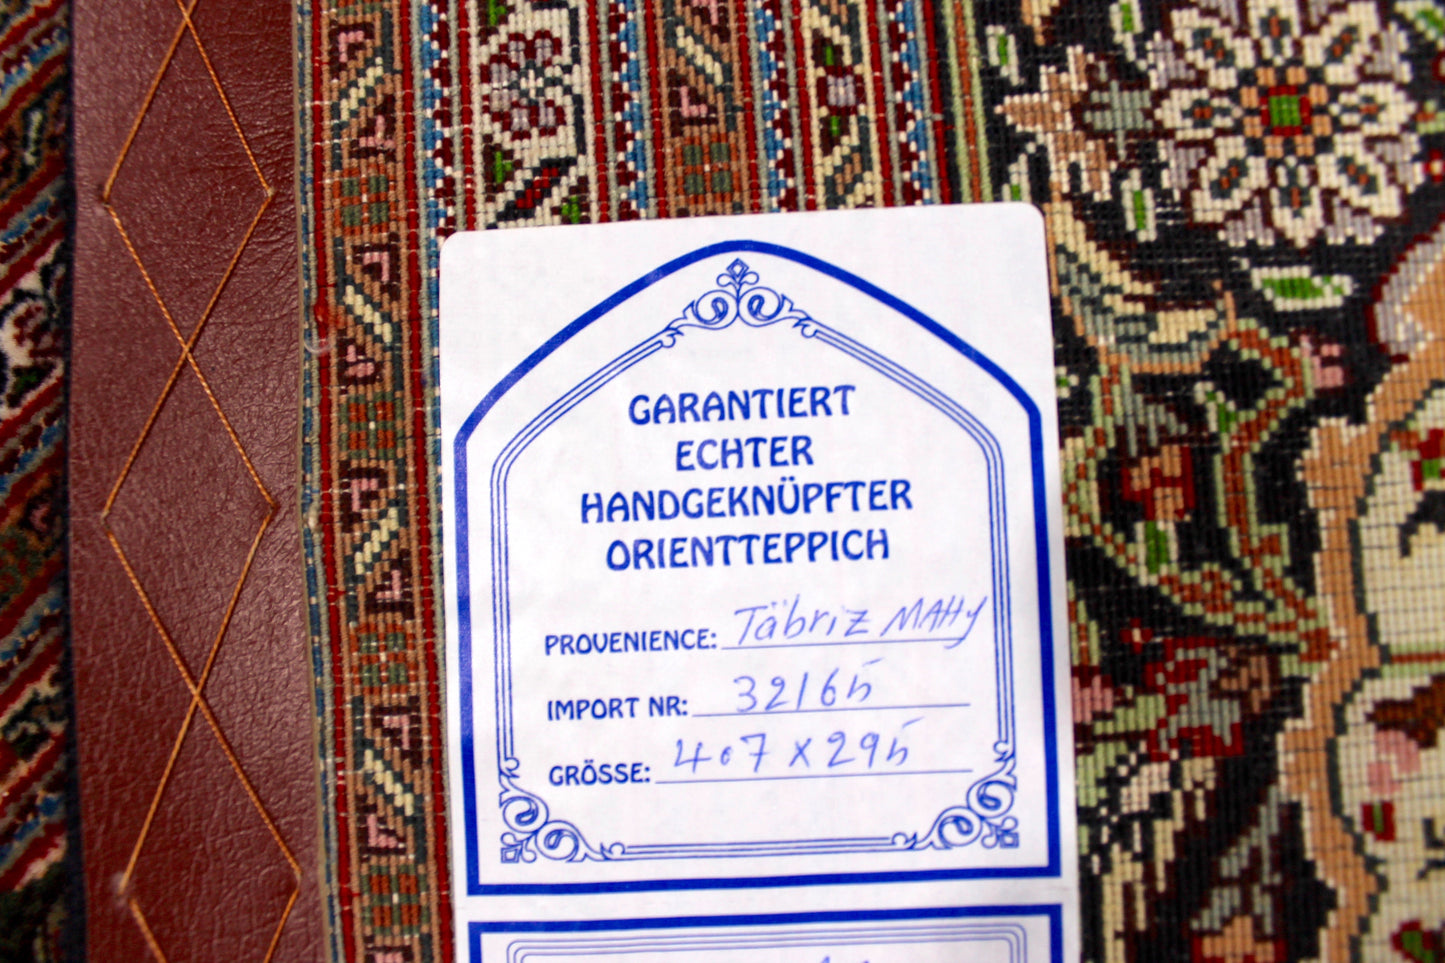 GARANTIERT
ECHTER
HANDGEKNÜPFTER
ORIENTTEPPICH
PROVENIENCE: Täbriz MAHY
IMPORT NR: 32165
GRÖSSE: 407 x 295